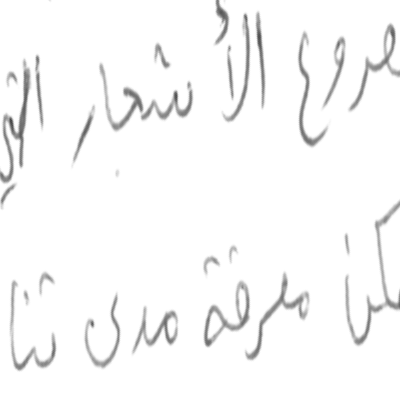 صروع الأشجار التي
كن معرفة مدى تنا